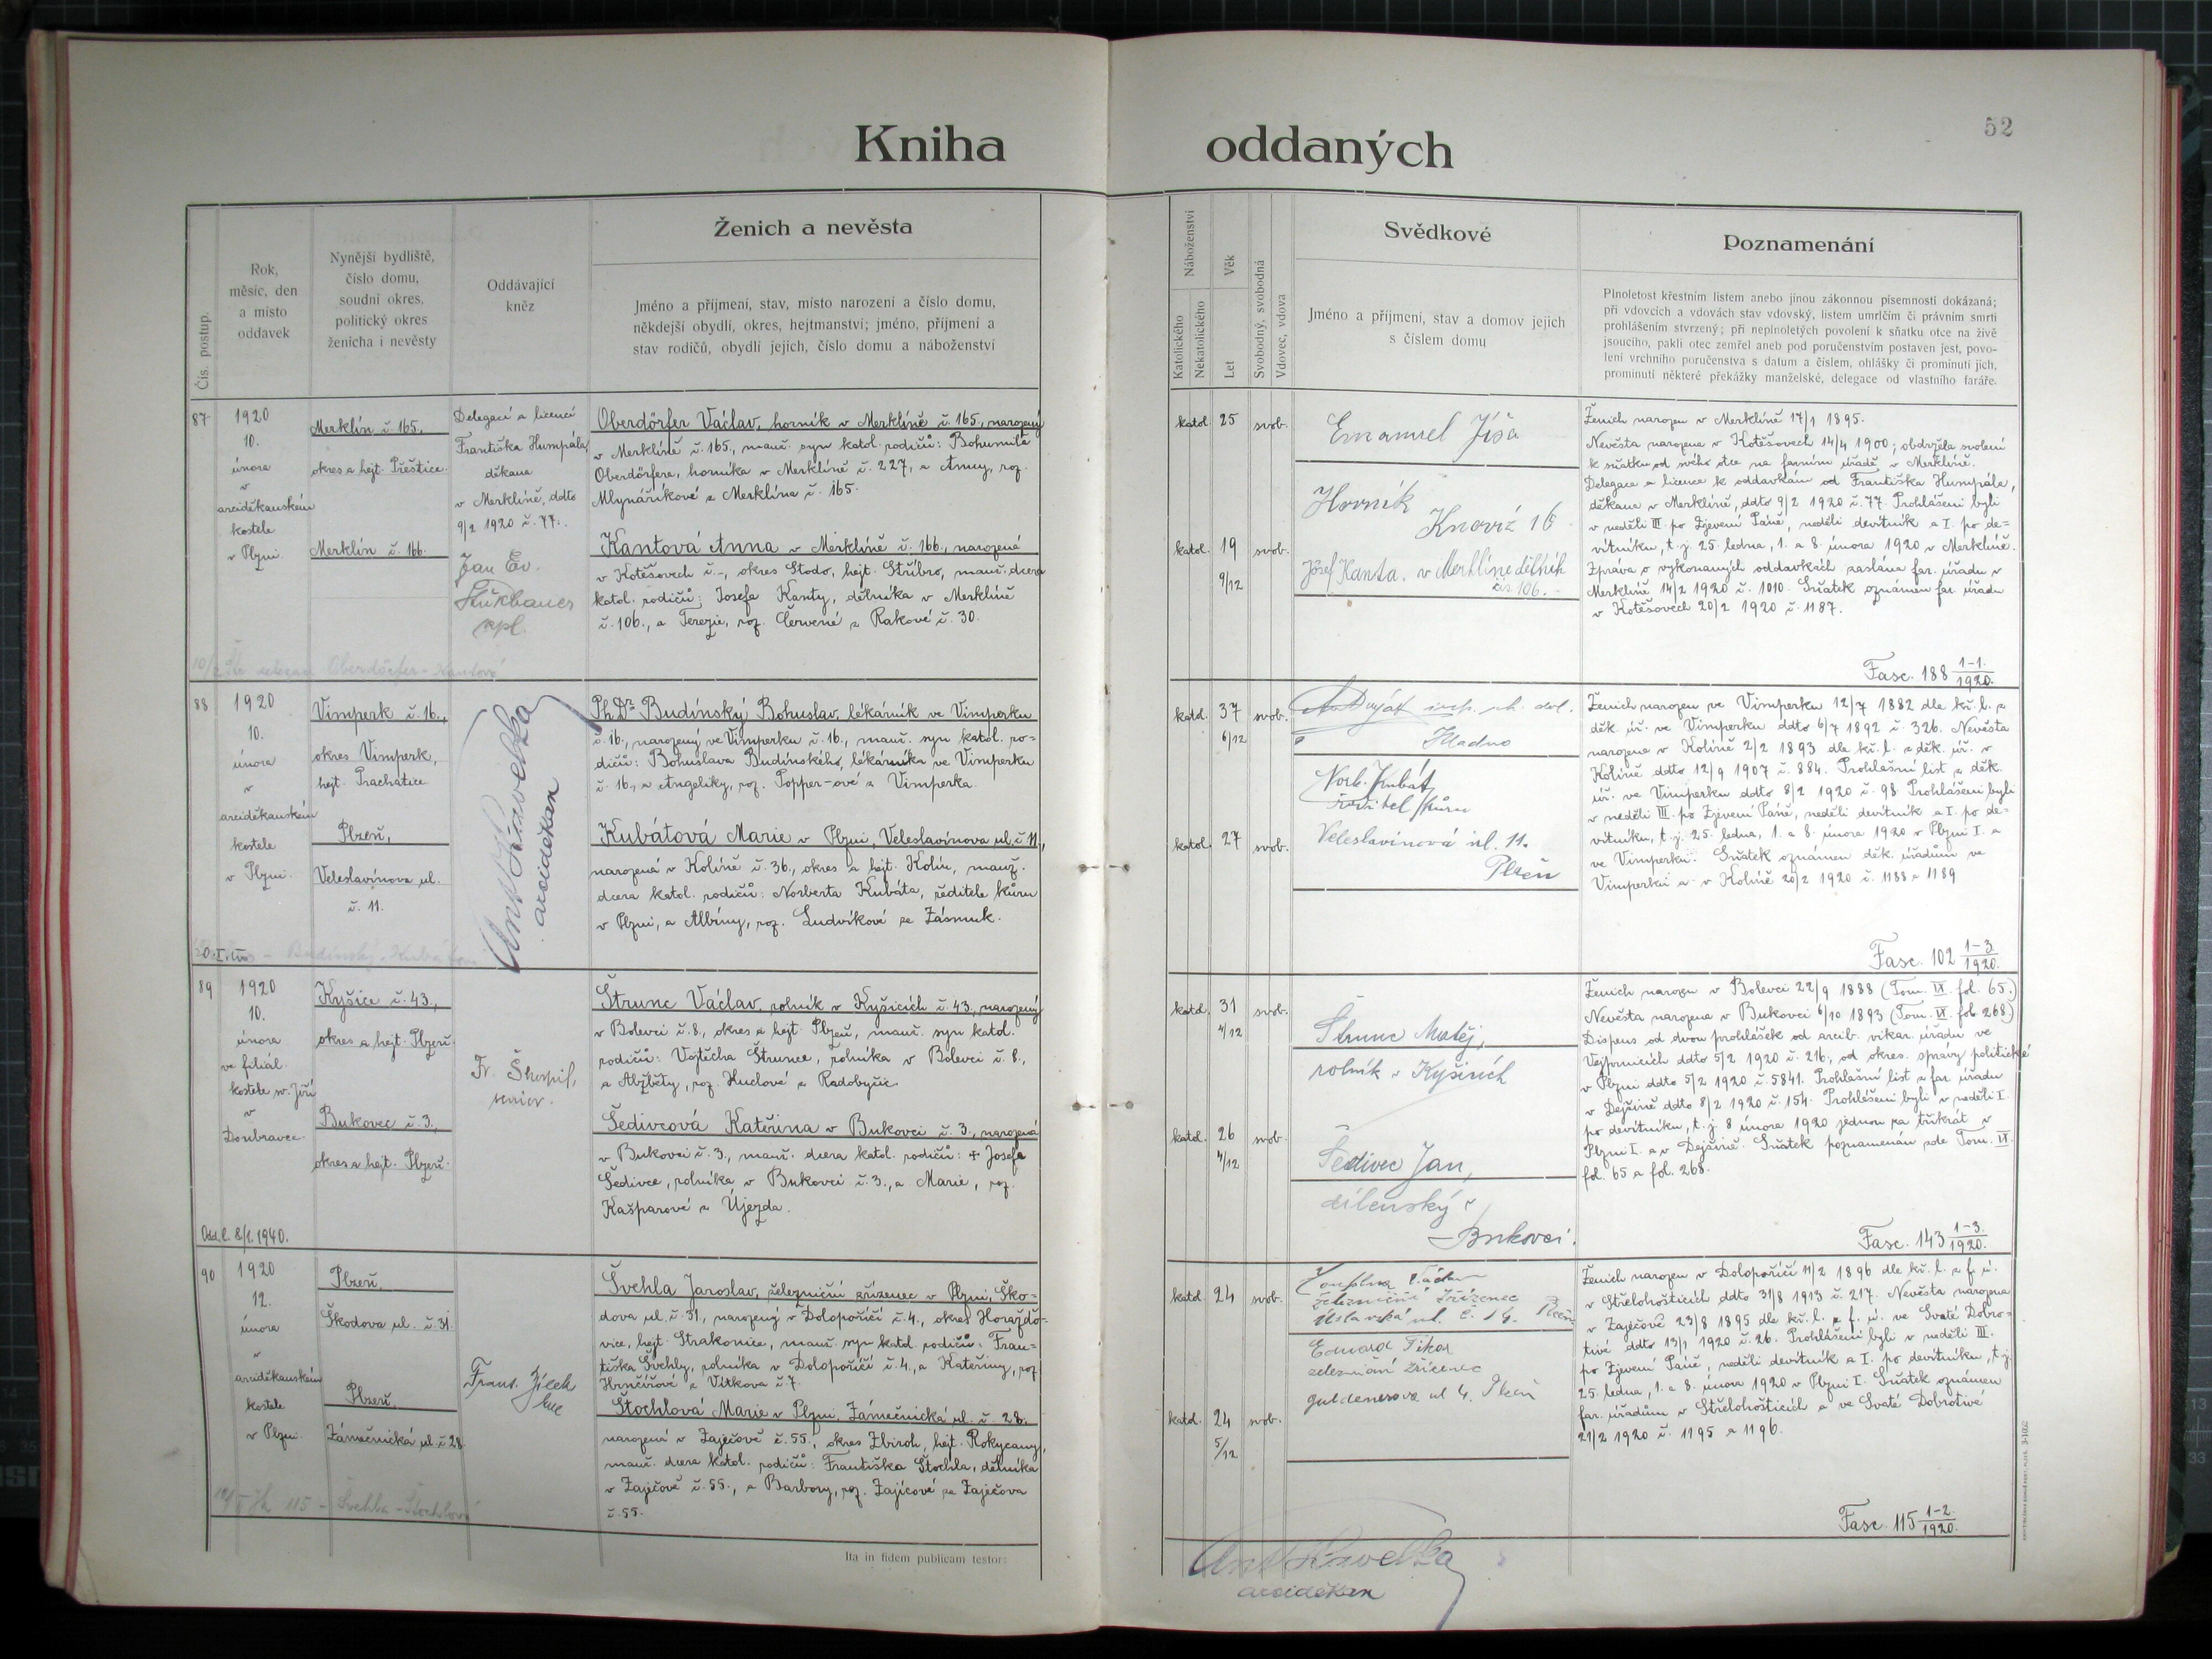 Kniha
oddaných
52
Čís. postup.
Rok,
měsíc, den
a místo
oddavek
Nynější bydliště,
číslo domu,
soudní okres,
politický okres
ženicha i nevěsty
Oddávající
kněz
Ženich a nevěsta
Jméno a příjmení, stav, místo narození a číslo domu,
někdejší obydlí, okres, hejtmanství; jméno, příjmení a
stav rodičů, obydlí jejich, číslo domu a náboženství
Náboženství
Katolického
Nekatolického
Věk
Let
Svobodný, svobodná
Vdovec, vdova
Svědkové
Jméno a příjmení, stav a domov jejich
s číslem domu
Poznamenání
Plnoletost křestním listem anebo jinou zákonnou písemností dokázaná;
při vdovcích a vdovách stav vdovský, listem umrlčím či právním smrti
prohlášením stvrzený; při neplnoletých povolení k sňatku otce na živě
jsoucího, pakli otec zemřel aneb pod poručenstvím postaven jest, povo-
lení vrchního poručenstva s datum a číslem, ohlášky či prominutí jich,
prominutí některé překážky manželské, delegace od vlastního faráře.
87
1920
10.
února
v
arciděkanském
kostele
v Plzni.
Merklín č. 165,
okres a hejt. Přeštice.
Merklín č. 166.
Delegací a licencí
Františka Humpála,
děkana
v Merklíně, ddto
9/2 1920 č. 77.
Jan Ev.
kpl.
Oberdörfer Václav, horník v Merklíně č. 165, narozený
v Merklíně č. 165., manž. syn katol. rodičů: Bohumila
Oberdörfera, horníka v Merklíně č. 227, a Anny, roz.
Mlynáříkové z Merklína č. 165.
Kantová Anna v Merklíně č. 166., narozená
v Kotěšovech č. -, okres Stodo, hejt. Stříbro, manž. dcera
katol. rodičů: Josefa Kanty, dělníka v Merklíně
č. 106., a Terezie, roz. Červené z Rakové č. 30.
Oberdörfer - Kantová
katol.
25
svob.
katol.
19
9/12
svob.
Emanuel Jíša
Horník
Knovíz 16
Josef Kanta. v Merklíne dělník
čís. 106.
Ženich narozen v Merklíně 17/1 1895.
Nevěsta narozena v Kotěšovech 14/4 1900; obdržela svolení
k sňatku od svého otce na farním úřadě v Merklíně.
Delegace a licence k oddavkám od Františka Humpála,
děkana v Merklíně, ddto 9/2 1920 č. 77. Prohlášeni byli
v neděli III. po Zjevení Páně, neděli devítník a I. po de-
vítníku, t. j. 25. ledna, 1. a 8. února 1920 v Merklíně.
Zpráva o vykonaných oddavkách zaslána far. úřadu v
Merklíně 14/2 1920 č. 1010. Sňatek oznámen far. úřadu
v Kotěšovech 20/2 1920 č. 1187.
Fasc. 188 1-1./1920.
88
1920
10.
února
v
arciděkanském
kostele
v Plzni.
Vimperk č. 16.,
okres Vimperk,
hejt. Prachatice
Plzeň,
Veleslavínova ul.
č. 11.
Ant. Havelka
arciděkan
PhDr Budínský Bohuslav, lékárník ve Vimperku
č. 16., narozený ve Vimperku č. 16., manž. syn katol. ro-
dičů: Bohuslava Budínského, lékárníka ve Vimperku
č. 16, a Angeliky, roz. Popper-ové z Vimperka.
Kubátová Marie v Plzni, Veleslavínova ul. č. 11,
narozená v Kolíně č. 36., okres a hejt. Kolín, manž.
dcera katol. rodičů: Norberta Kubáta, ředitele kůru
v Plzni, a Albíny, roz. Ludvíkové ze Zásmuk.
Budínský - Kubátová
katol.
37
6/12
svob.
katol.
27
svob.
Kladno
Norb. Kubát
ředitel kůru
Veleslavínová ul. 11.
Plzeň
Ženich narozen ve Vimperku 12/7 1882 dle kř. l. z
děk. úř. ve Vimperku ddto 6/7 1892 č. 326. Nevěsta
narozena v Kolíně 2/2 1893 dle kř. l. z děk. úř. v
Kolíně ddto 12/9 1907 č. 884. Prohlašní list z děk.
úř. ve Vimperku ddto 8/2 1920 č. 98. Prohlášeni byli
v neděli III. po Zjevení Páně, neděli devítník a I. po de-
vítníku, t. j. 25. ledna, 1. a 8. února 1920 v Plzni I. a
ve Vimperku. Sňatek oznámen děk. úřadům ve
Vimperku a v Kolíně 20/2 1920 č. 1188 a 1189
Fasc. 102 1-3./1920.
89
1920
10.
února
ve filiál.
kostele sv. Jiří
v
Doubravce.
Kyšice č. 43.,
okres a hejt. Plzeň.
Bukovec č. 3.,
okres a hejt. Plzeň.
Odd. l. 8/1. 1940.
Fr. Škorpil,
senior.
Štrunc Václav, rolník v Kyšicích č. 43, narozený
v Bolevci č. 8., okres a hejt. Plzeň, manž. syn katol.
rodičů: Vojtěcha Štrunce, rolníka v Bolevci č. 8.,
a Alžběty, roz. Huclové z Radobyčic.
Šedivcová Kateřina v Bukovci č. 3., narozená
v Bukovci č. 3., manž. dcera katol. rodičů: + Josefa
Šedivce, rolníka v Bukovci č. 3., a Marie, roz.
Kašparové z Újezda.
katol.
31
4/12
svob.
katol.
26
4/12
svob.
Štrunc Matěj,
rolník v Kyšicích
Šedivec Jan,
dílenský
Bukovci.
Ženich narozen v Bolevci 22/9 1888 (Tom. VI. fol. 65.)
Nevěsta narozena v Bukovci 6/10 1893 (Tom. VI. fol. 268.)
Dispens od dvou prohlášek od arcib. vikar. úřadu ve
Vejprnicích ddto 5/2 1920 č. 216, od okres. správy politické
v Plzni ddto 5/2 1920 č. 5841. Prohlašní list z far. úřadu
v Dejšině ddto 8/2 1920 č. 154. Prohlášeni byli v neděli I.
po devítníku, t. j. 8 února 1920 jednou za třikrát v
Plzni I. a v Dejšině. Sňatek poznamenán zde Tom. VI.
fol. 65 a fol. 268.
Fasc. 143 1-3./1920.
90
1920
12.
února
v
arciděkanském
kostele
v Plzni.
Plzeň,
Škodova ul. č. 31.
Plzeň,
Zámečnická ul. č 28.
Frant. Jílek
Švehla Jaroslav, železniční zřízenec v Plzni, Ško-
dova ul. č. 31., narozený v Dolopoříčí č. 4., okres Horažďo-
vice, hejt. Strakonice, manž. syn katol. rodičů: Fran-
tiška Švehly, rolníka v Dolopoříčí č. 4., a Kateřiny, roz.
Hrnčířové z Vítkova č. 7.
Štochlová Marie v Plzni, Zámečnická ul. č. 28.
narozená v Zaječově č. 55., okres Zbiroh, hejt. Rokycany,
manž. dcera katol. rodičů: Františka Štochla, dělníka
v Zaječově č. 55., a Barbory, roz. Zajícové ze Zaječova
č. 55.
115 - Švehla - Štochlová
katol.
24
svob.
katol.
24
5/12
svob.
železniční zřízenec
Úslavská ul. č. 14. Plzeň
Eduard Fikar
železniční zřízenec
guldenerova ul 4. Plzeň
Ženich narozen v Dolopoříčí 11/2 1896 dle kř. l. z f. ú.
v Střelohošticích ddto 31/8 1913 č. 217. Nevěsta narozena
v Zaječově 23/8 1895 dle kř. l. z f. ú. ve Svaté Dobro-
tivé ddto 13/1 1920 č. 26. Prohlášeni byli v neděli III.
po Zjevení Páně, neděli devítník a I. po devítníku, t. j.
25. ledna, 1. a 8. února 1920 v Plzni I. Sňatek oznámen
far. úřadům v Střelohošticích a ve Svaté Dobrotivé
21/2 1920 č. 1195 a 1196.
Fasc. 115 1-2./1920.
Ita in fidem publicam testor:
Ant Havelka
arciděkan